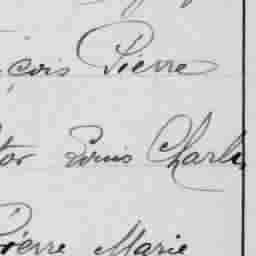 çois Pierre
tor Louis Charles
Pierre Marie